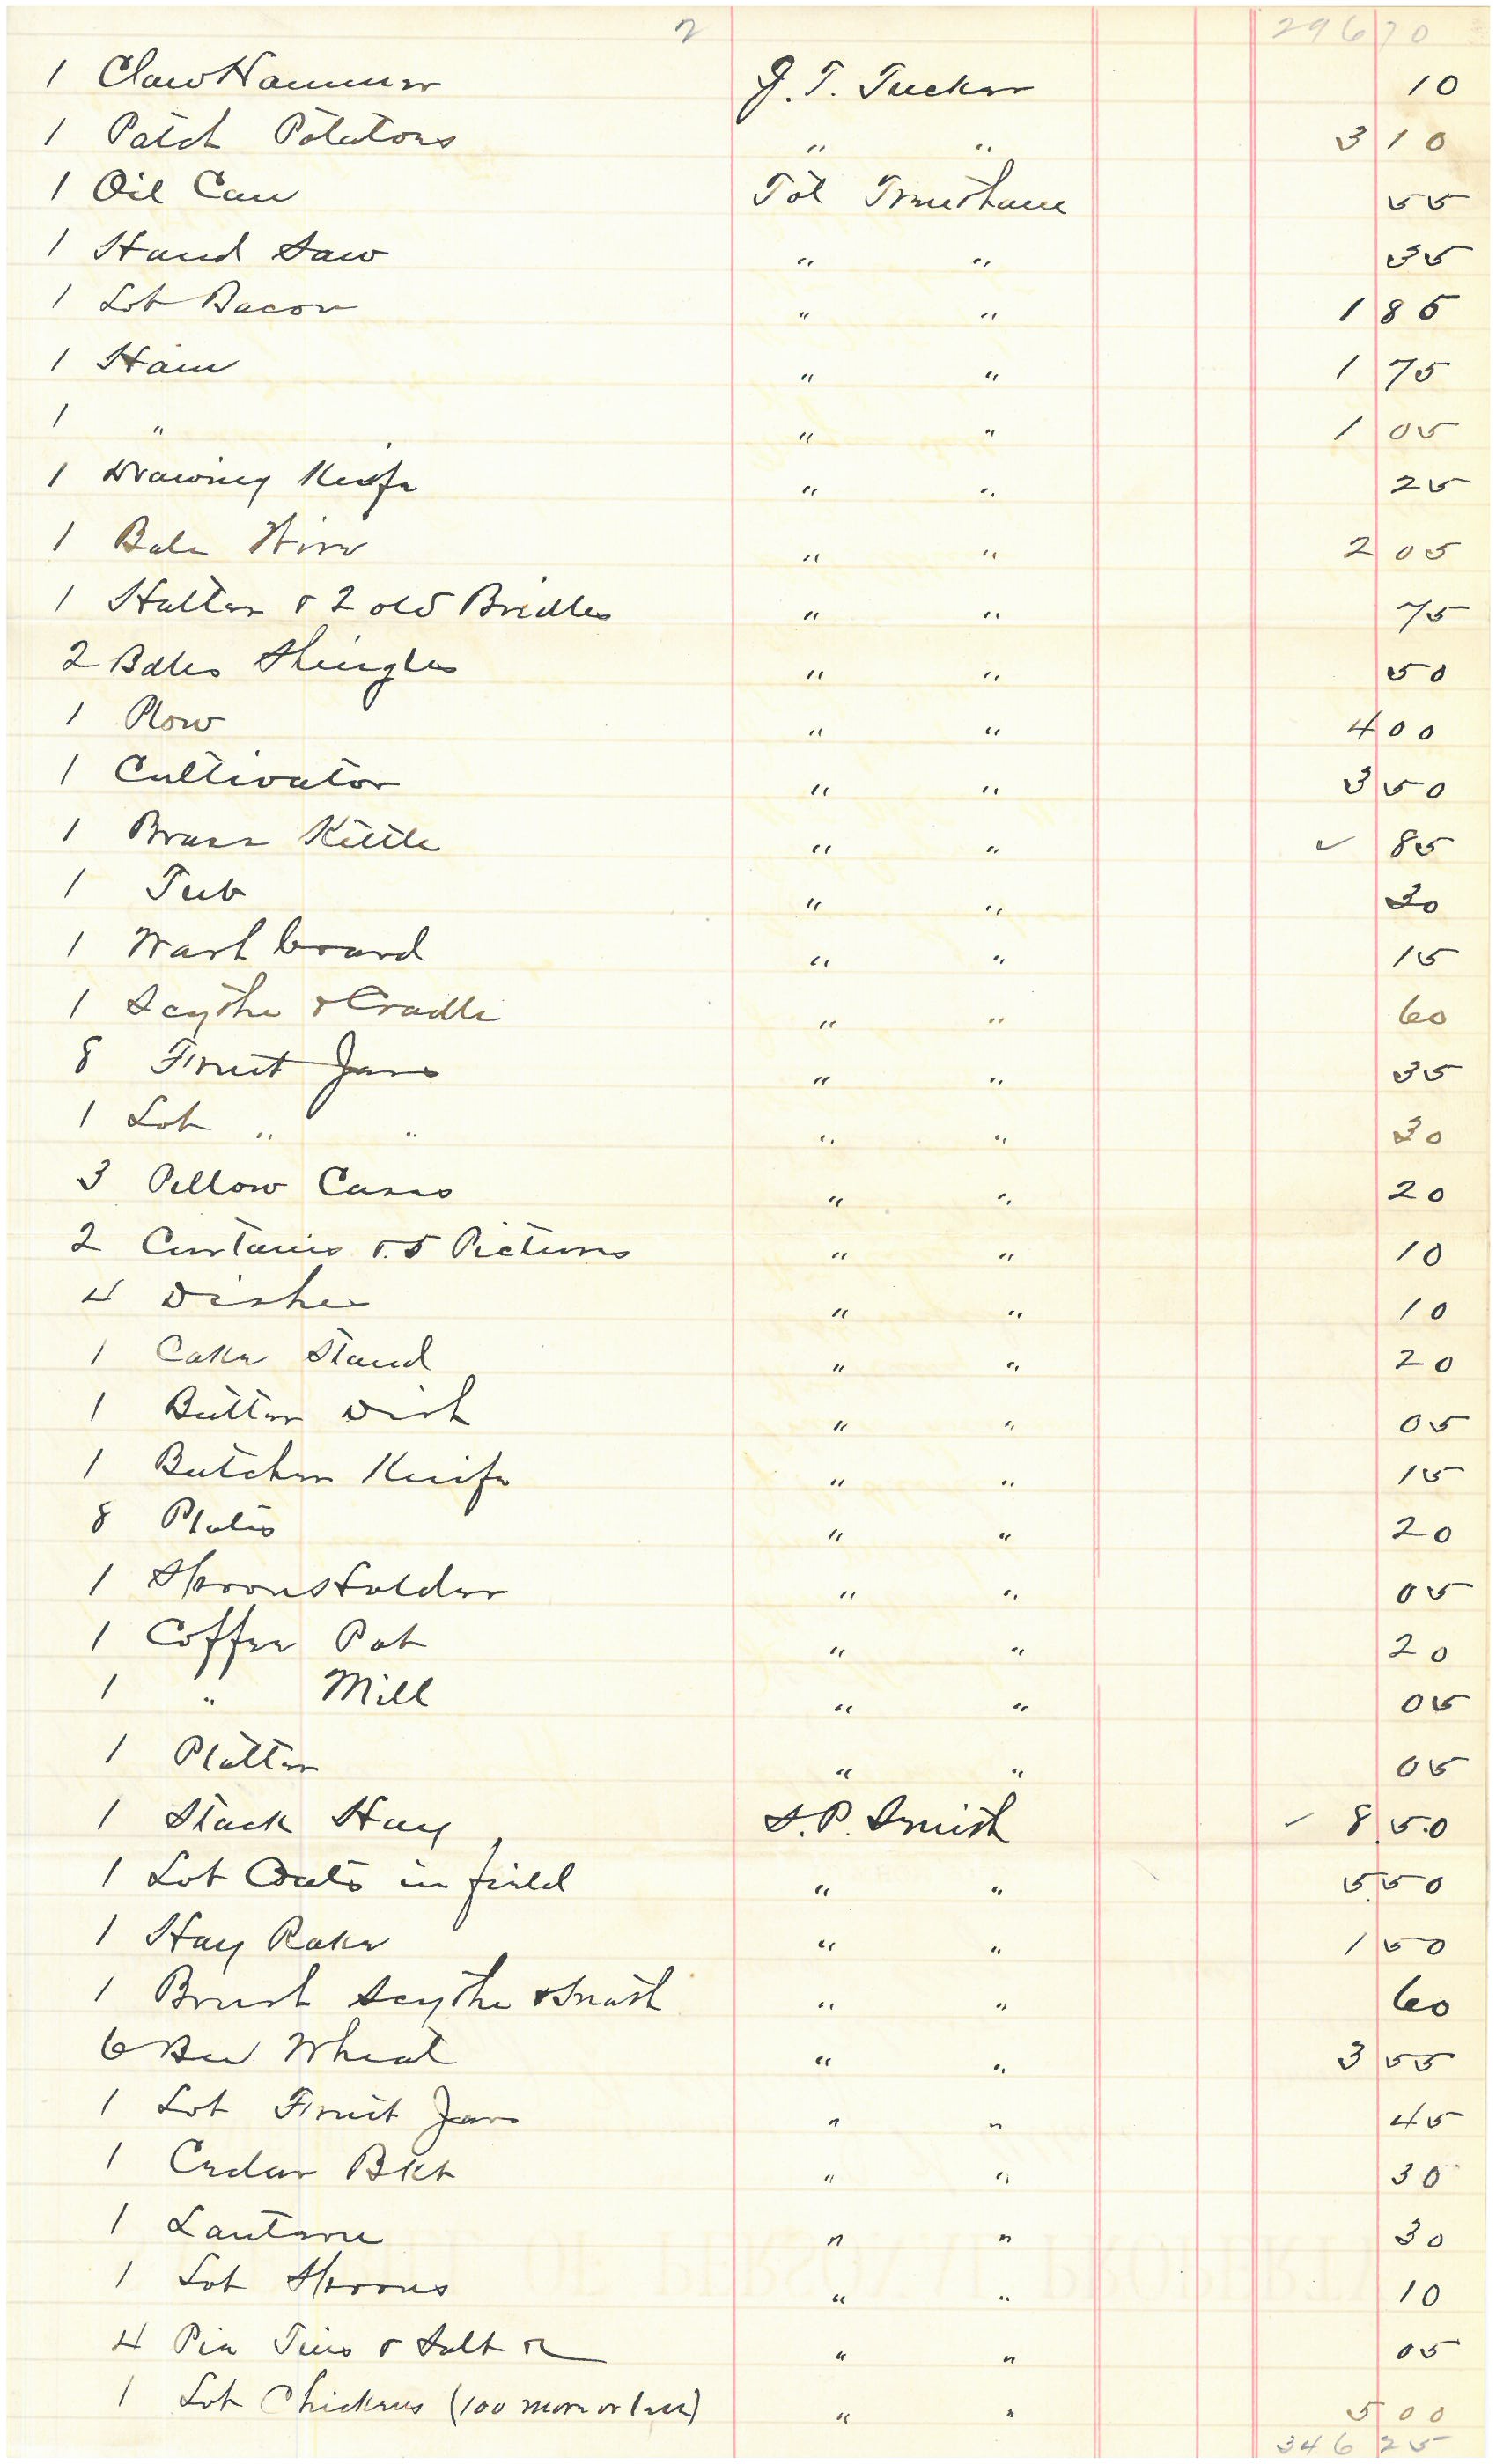 2 296 70
1 Claw Hammer J. T. Tucker 10
1 Patch Potatoes " " 3 10
1 Oil Can Tol 55
1 Hand Saw " " 35
1 Lot Bacon " " 1 85
1 Ham " " 1 75
1 " " " 1 05
1 Drawing Knife " " 25
1 Bale Wire " " 2 05
1 Halter & 2 old Bridles " " 75
2 Bales Shingles " " 50
1 Plow " " 4 00
1 Cultivator " " 3 50
1 Brass Kettle " " ✓ 85
1 Tub " " 30
1 Wash board " " 15
1 Scythe & Cradle " " 60
8 Fruit Jars " " 35
1 Lot " " " " 30
3 Pillow Cases " " 20
2 Curtains & 5 Pictures " " 10
4 Dishes " " 10
1 Cake Stand " " 20
1 Butter Dish " " 05
1 Butcher Knife " " 15
8 Plates " " 20
1 Spoonsholder " " 05
1 Coffee Pot " " 20
1 " Mill " " 05
1 Platter " " 05
1 Stack Hay S. P. Smith ✓ 8 50
1 Lot Oats in field " " 5 50
1 Hay Rake " " 1 50
1 Brush Scythe & Snath " " 60
6 Bu Wheat " " 3 55
1 Lot Fruit Jars " " 45
1 Cedar Bkt " " 30
1 Lantern " " 30
1 Lot Spoons " " 10
4 Pie Tins & Salt " " 05
1 Lot Chickens (100 more or less) " " 5 00
346 25